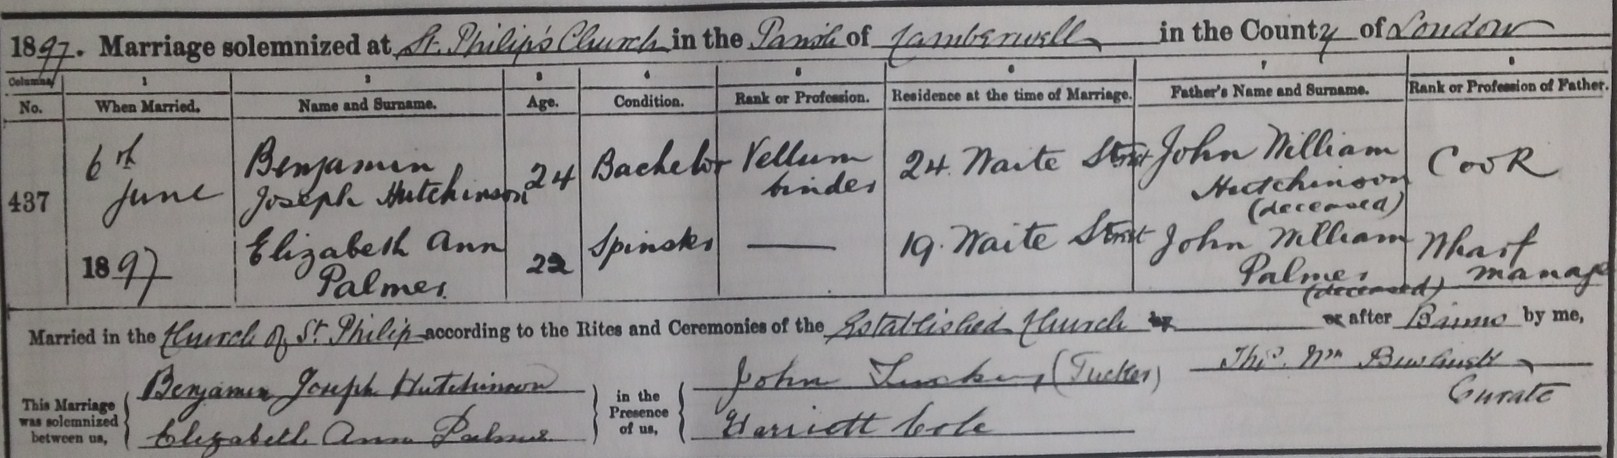 1897. Marriage solemnized at St. Philip's Church in the Parish of Camberwell in the County of London
Columns 1 2 3 4 5 6 7 8
No. When Married. Name and Surname. Age. Condition. Rank or Profession. Residence at the time of Marriage. Father's Name and Surname. Rank or Profession of Father.
437
6th
June
1897
Benjamin
Joseph Hutchinson
24
Bachelor
Vellum
binder
24. Waite Street
John William
Hutchinson
(deceased)
Cook
Elizabeth Ann
Palmer
22
Spinster
19. Waite Street
John William
Palmer
(deceased)
Wharf
manager
Married in the Church of St. Philip according to the Rites and Ceremonies of the Established Church by or after Banns by me,
This Marriage
was solemnized
between us,
Benjamin Joseph Hutchinson
Elizabeth Ann Palmer
in the
Presence
of us,
John Tucker (Tucker)
Harriett Cole
Thos. Wm
Curate